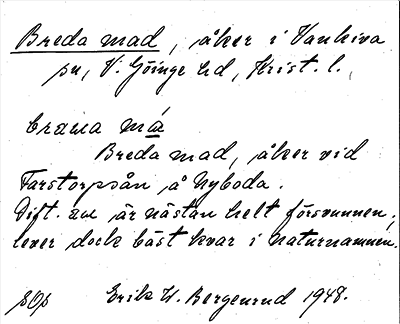 Breda mad, åker i Vankiva
sn, V. Göinge hd, Krist. l.
Breda mad, åker vid
Farstorpsån å Nyboda.
Dift. au är nästan helt försvunnen;
lever dock bäst kvar i naturnamnen.
Erik W. Bergenrud 1948.